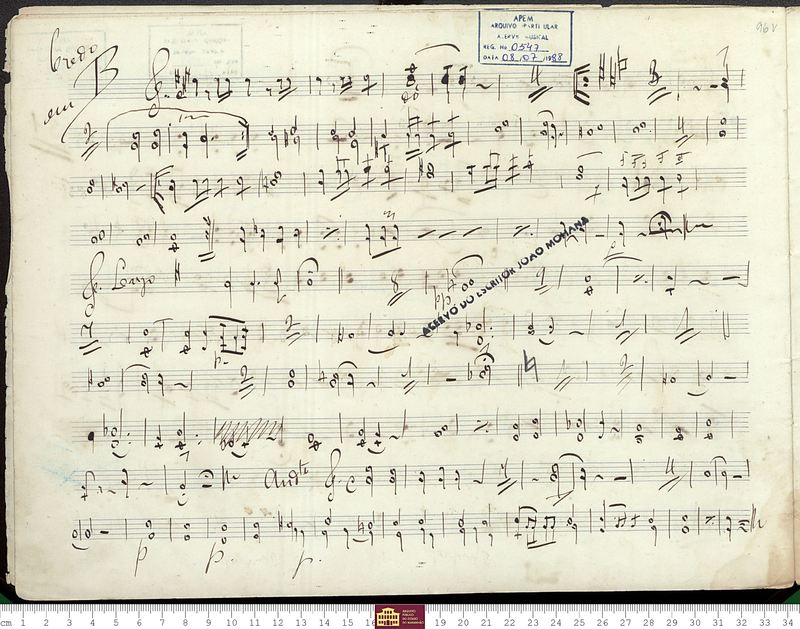 96v
APEM
ARQUIVO PARTICULAR
ACERVO MUSICAL
REG. No 0547
DATA 08 07 1988
Credo
em B
ACERVO DO ESCRITOR JOÃO MOHANA
Largo
pp
p
Andte
p p. p.
cm 1 2 3 4 5 6 7 8 9 10 11 12 13 14 15 16 19 20 21 22 23 24 25 26 27 28 29 30 31 32 33 34
ARQUIVO
PÚBLICO
DO ESTADO
DO MARANHÃO